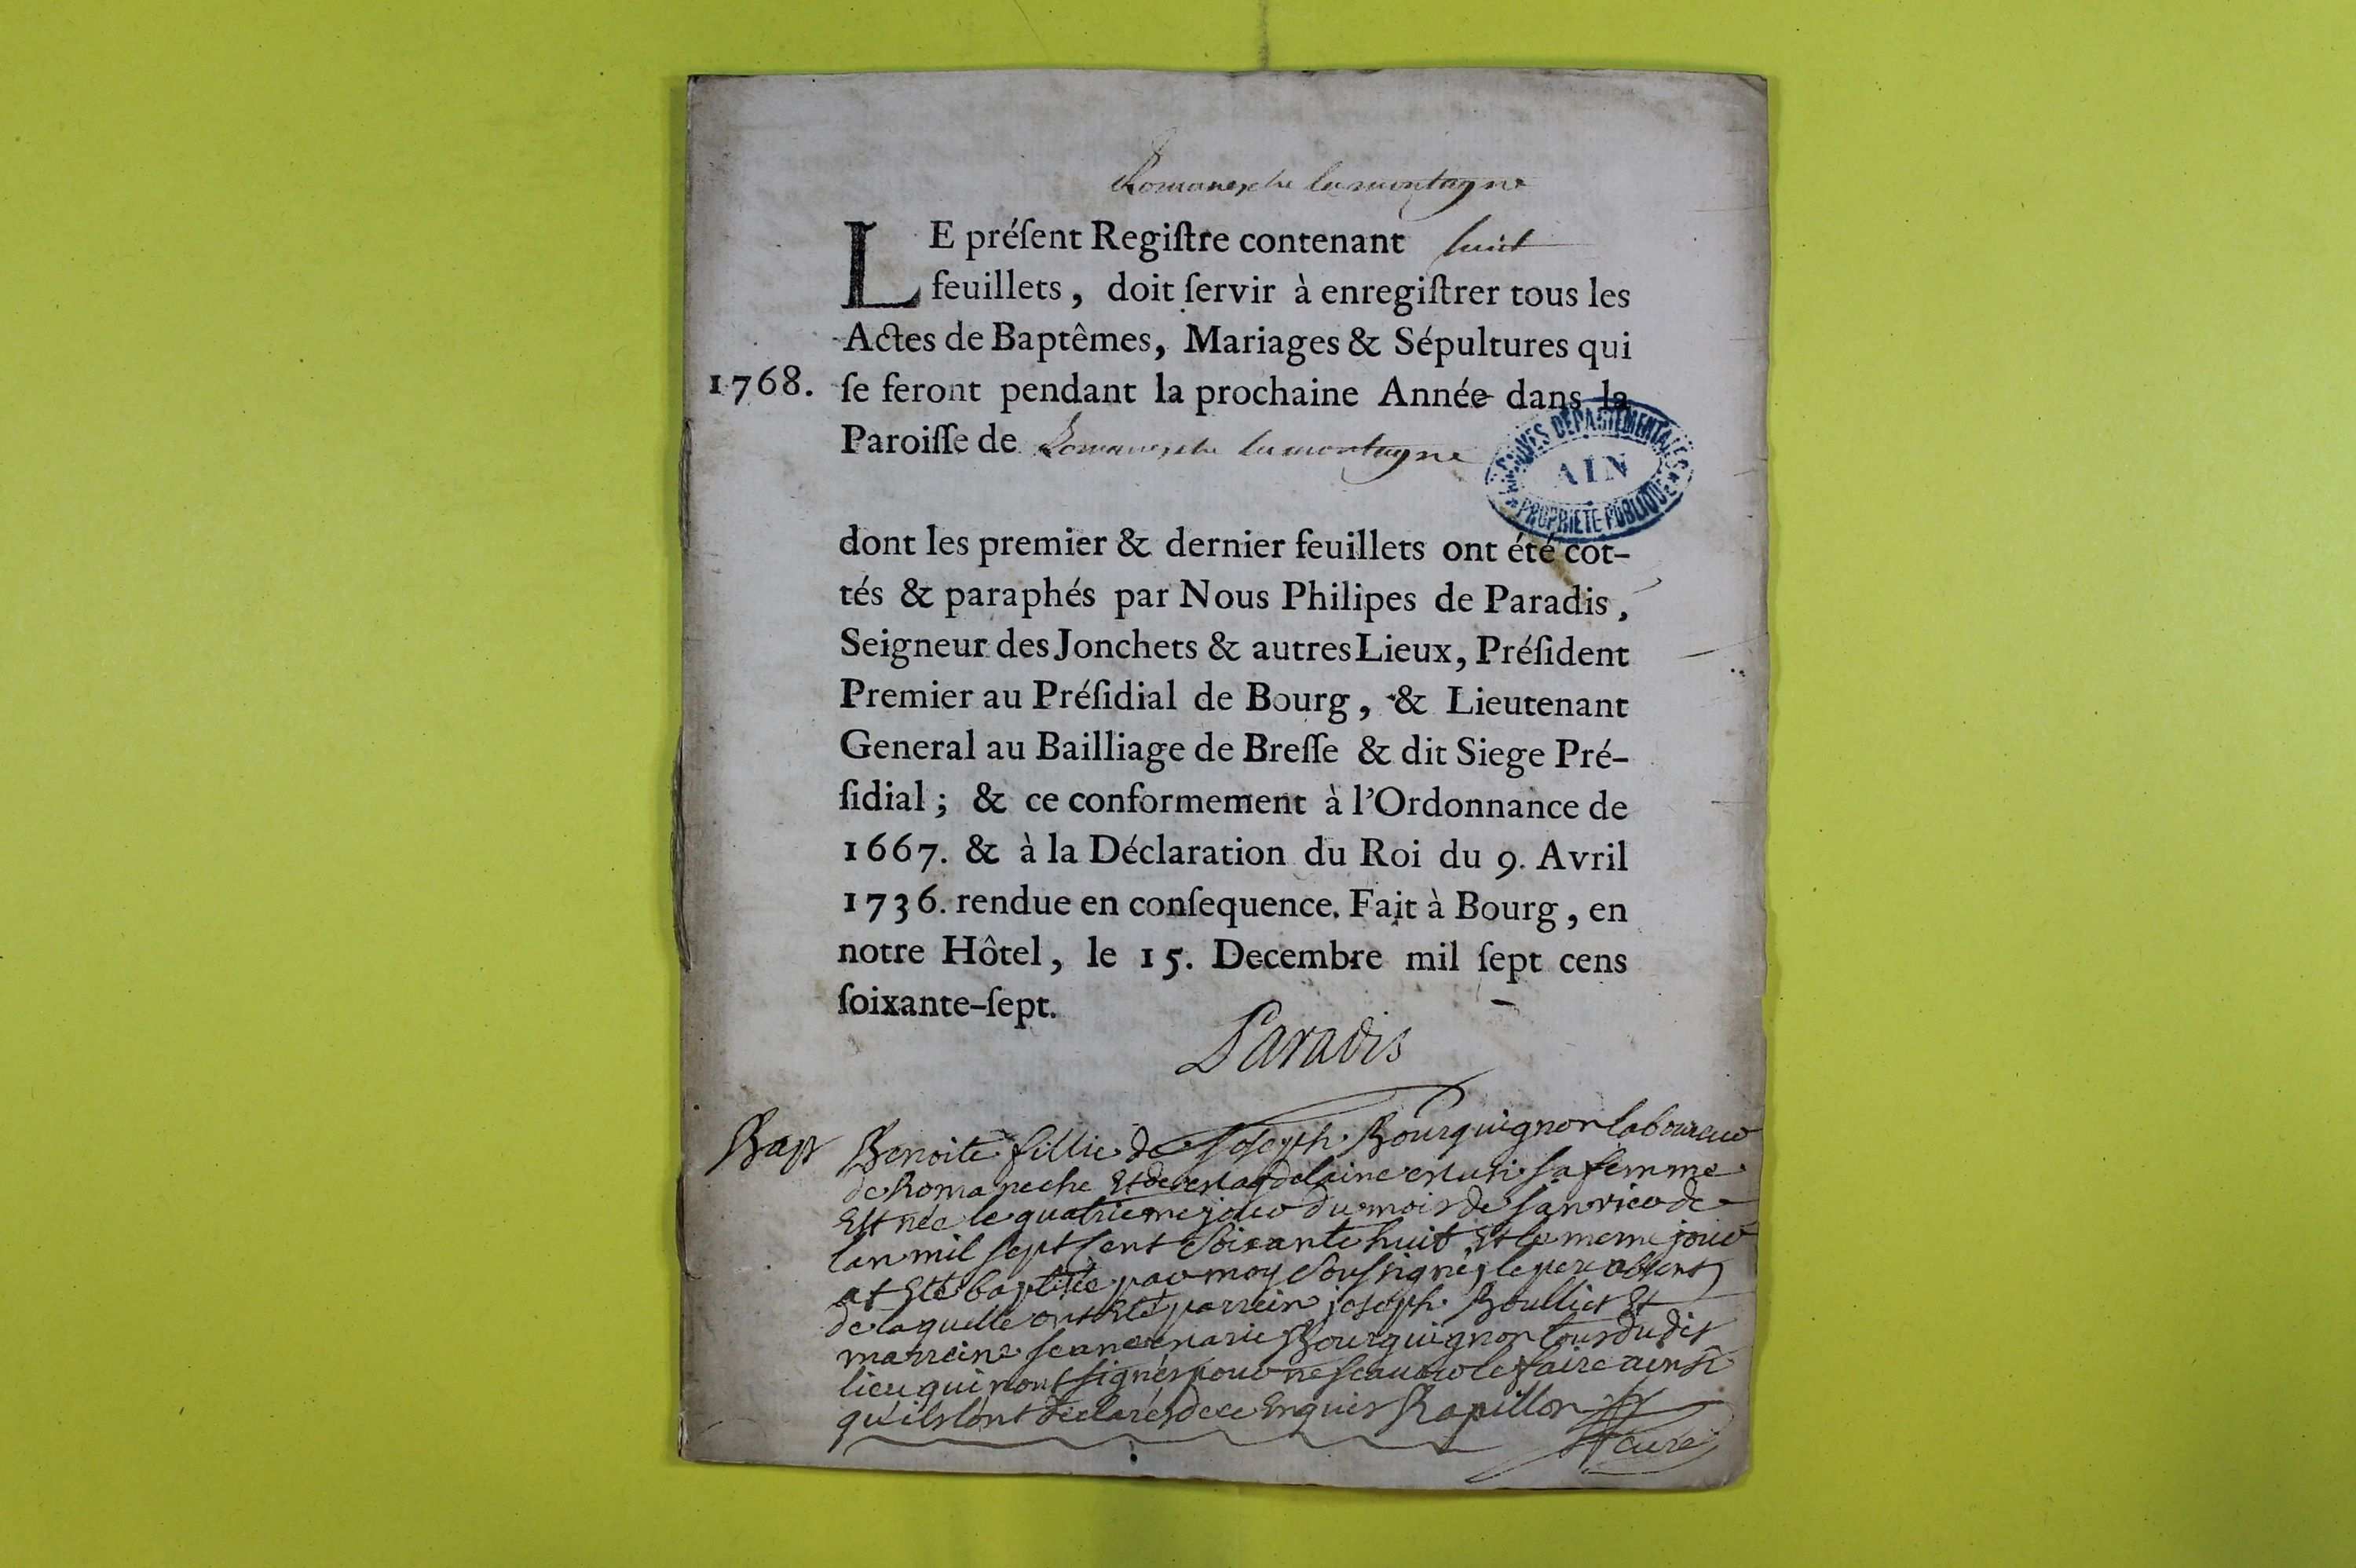 Romanesche la montagne
LE préſent Regiſtre contenant huit
feuillets, doit ſervir à enregiſtrer tous les
Actes de Baptêmes, Mariages & Sépultures qui
1768. ſe feront pendant la prochaine Année dans la
Paroiſſe de Romanesche la montagne
ARCHIVES DÉPARTEMENTALES
AIN
PROPRIÉTÉ PUBLIQUE
dont les premier & dernier feuillets ont été cot-
tés & paraphés par Nous Philipes de Paradis,
Seigneur des Jonchets & autres Lieux, Préſident
Premier au Préſidial de Bourg, & Lieutenant
General au Bailliage de Breſſe & dit Siege Pré-
ſidial; & ce conformement à l'Ordonnance de
1667. & à la Déclaration du Roi du 9. Avril
1736. rendue en conſequence. Fait à Bourg, en
notre Hôtel, le 15. Decembre mil ſept cens
ſoixante-ſept.
Paradis
Bap Benoite fillie de Joseph Bourguignon laboureur
de Romaneche Et de Magdelaine sa femme
Est née le quatrieme jour du mois de Janvier de
lan mil sept sent soixante huit Et le meme jour
at Eté baptisée par moy soussigné, le pere absent
de laquelle ont Eté parrein joseph Boullier Et
marreine jeanne marie Bourguignon tous du dit
lieu qui n'ont signés pour ne scavoir le faire ainsi
qu'ils l'ont déclarés de ce Enquis Rapillon
curé